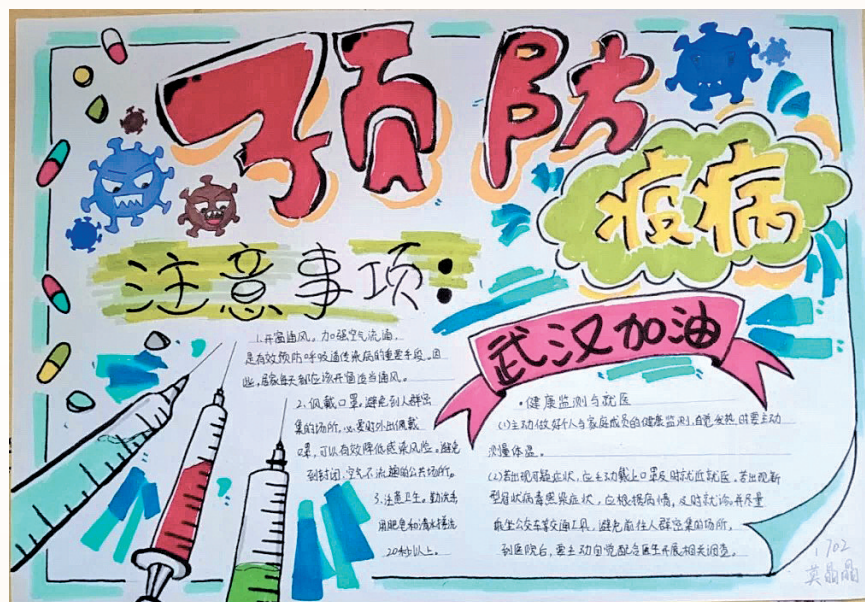 预防
疫病
注意事项:
1.开窗通风。加强空气流通,
是有效预防呼吸道传染病的重要手段。因
此,居家每天都应该开窗适当通风。
2.佩戴口罩。避免到人群密
集的场所,必要时外出佩戴
口罩,可以有效降低感染风险。避免
到封闭、空气不流通的公共场所。
3.注意卫生。勤洗手
用肥皂和清水搓洗
20秒以上。
武汉加油
·健康监测与就医
(1)主动做好个人与家庭成员的健康监测,自觉发热时要主动
测量体温。
(2)若出现可疑症状,应主动戴上口罩及时就近就医。若出现新
型冠状病毒感染症状,应根据病情,及时就诊,并尽量
乘坐公交车等交通工具,避免前往人群密集的场所。
到医院后,要主动自觉配合医生开展相关调查。
1702
莫晶晶